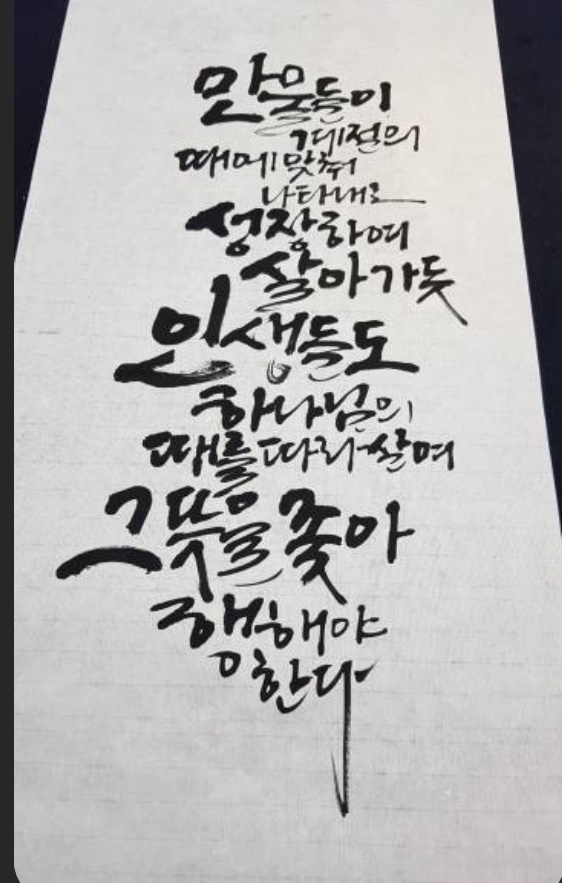 만물들이
계절의
때에 맞춰
나타내고
성장하며
살아가듯
인생들도
하나님의
때를 따라 살며
그 뜻을 좇아
행해야
한다